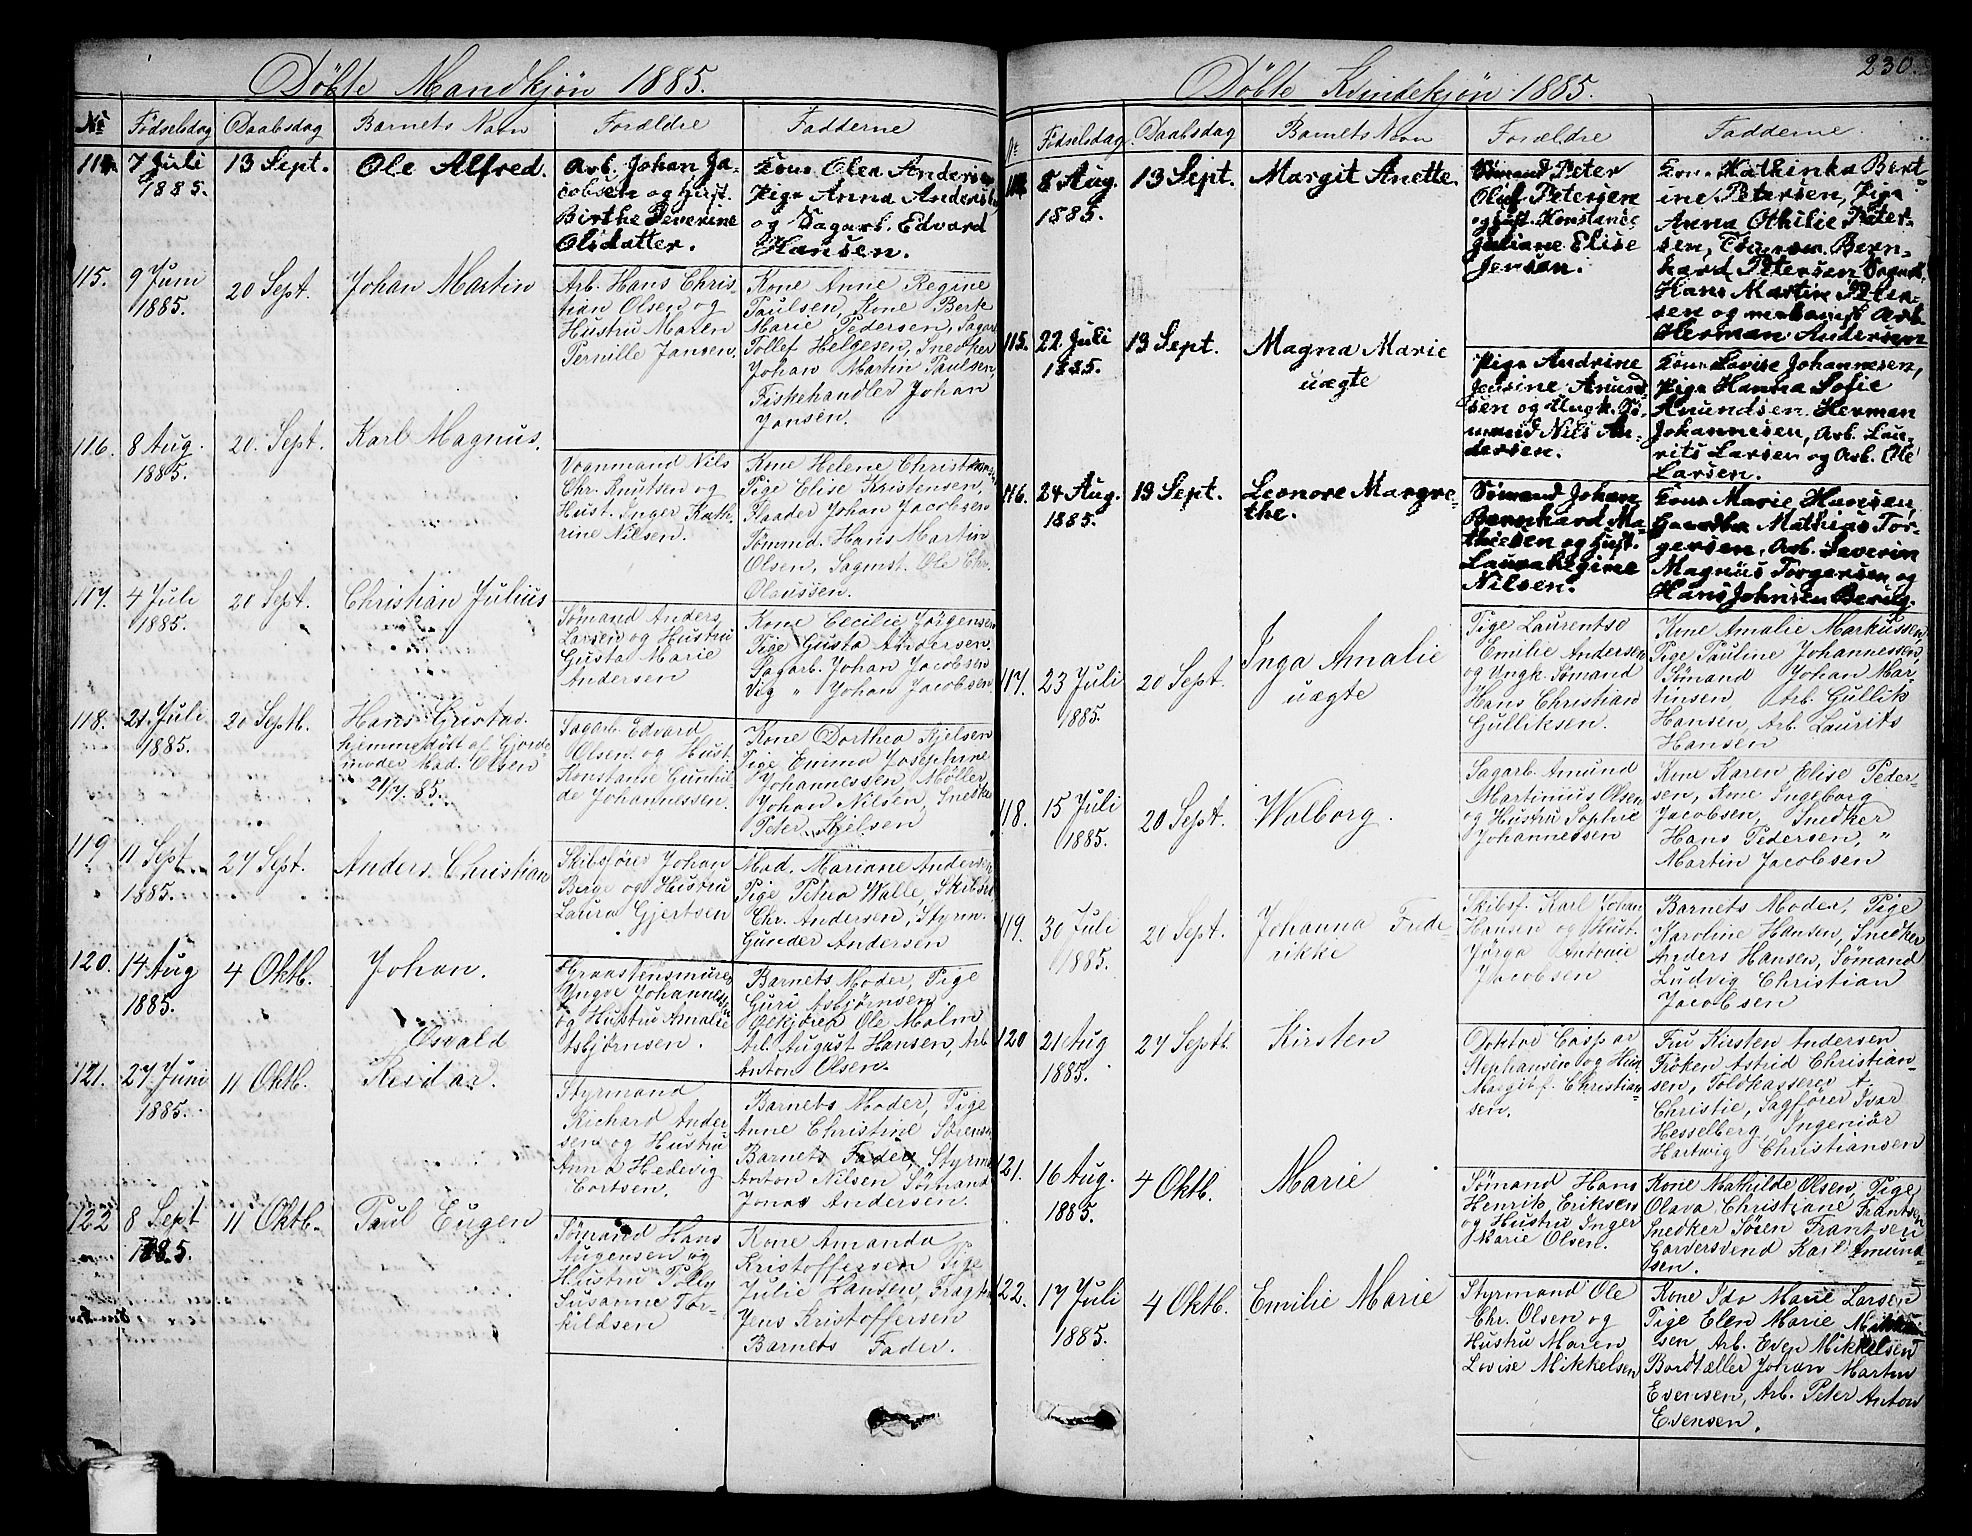 230.
Döbte Mandkjön 1885.
No Födselsdag Daabsdag Barnets Navn Forældre Fadderne
114. 7 Juli 1885. 13 Sept. Ole Alfred.
Arb. Johan Ja-
cobsen og Hust.
Birthe Severine
Olsdatter.
Kone Olea Andersen
Pige Anna Andersen
og Sagarb. Edvard
Hansen.
115. 9 Juni 1885. 20 Sept. Johan Martin
Arb. Hans Chris-
tian Olsen og
Hustru Maren
Pernille Jansen.
Kone Anne Regine
Paulsen, Kone Berk
Marie Pedersen, Sagarb.
Tollef Helgesen, Snedker
Johan Martin Paulsen,
Fiskehandler Johan
Jansen.
116. 8 Aug. 1885. 20. Sept. Karl Magnus.
Vognmand Nils
Chr. Knutsen og
Hust. Inger Kath-
rine Nilsen.
Kone Helene
Pige Elise Kristensen,
Flaader Johan Jacobsen
Sömmd. Hans Martin
Olsen, Sagmst. Ole Chr.
Olaussen.
117. 4 Juli 1885. 20 Sept. Christian Julius
Sömand Anders
Larsen og Hustru
Gusta Marie
Andersen
Kone Cecilie Jörgensen
Pige Gusta Andersen.
Sagarb. Johan Jacobsen
Vig " Johan Jacobsen.
118. 21. Juli 1885. 20 Septb. Hans Gustav.
hjemmedöbt af Gjorde
moder Mad. Olsen
21/7. 85.
Sagarb. Edvard
Olsen. og Hust.
Konstanse Gunhil-
de Johannessen.
Kone Dorthea Kjelsen
Pige Emma Josephine
Johannessen, Möller
Johan Nilsen, Snedker
Peter Kjelsen
119. 11 Sept. 1885. 27 Sept. Anders Christian
Skibsförer Johan
Berge og Hustru
Laura Gjertsen
Mad. Mariane Andersen
Pige Petrea Walle, Skibsf.
Chr. Andersen, Styrm.
Gunder Andersen
120. 14 Aug 1885. 4 Oktb. Johan.
Graastensmurer
Yngve Johannessen
og Hustru Amalie
Asbjörnsen.
Barnets Moder, Pige
Guri Asbjörnsen
Ölkjörer Ole Malm
Arb. August Hansen, Arb.
Anton Olsen.
121. 27 Juni 1885. 11 Oktb. Osvald
Risdar.
Styrmand
Richard Ander-
sen og Hustru
Anna Hedevig
Cortsen.
Barnets Moder, Pige
Anne Christine Sörensen
Barnets Fader, Styrmd
Anton Nilsen Sömand
Jonas Andersen.
122 8 Sept 1885. 11 Oktb. Paul Eugen
Sömand Hans
Augensen og
Hustru Tolly
Susanne Tor-
kildsen
Kone Amanda
Kristoffersen Pige
Julie Hansen,
Jens Kristoffersen
Barnets Fader.
Döbte Kvindekjön 1885.
Nr Födselsdag Daabsdag Barnets Navn Forældre Fadderne
114 8 Aug. 1885. 13 Sept. Margit Anette.
Sömand Peter
Oluf Petersen
og Hust. Konstance
Juliane Elise
Jensen.
Kone Kathinka Bert-
ine Petersen, Pige
Anna Othilie Peter-
sen, Tömmerm. Bern-
hard Petersen Sömd.
Hans Martin Peter-
sen og Arb.
Herman Andersen
115. 22 Juli 1885. 13 Sept. Magna Marie
uægte
Pige Andrine
Jensine Amund-
sen og Ungk. Sö-
mand Nils An-
dersen.
Kone Lovise Johannesen,
Pige Hanna Sofie
Amundsen, Herman
Johannesen, Arb. Lau-
rits Larsen og Arb. Ole
Larsen.
116. 24 Aug. 1885. 13 Sept. Leonore Margre-
the.
Sömand Johan
Bernhard Ma-
thiesen og Hust.
Laura Regine
Nilsen.
Kone Marie Hansen,
Mathias Tor-
gersen, Arb. Severin
Magnus Torgersen og
Hans Johnsen Berug.
117. 23 Juli 1885. 20 Sept. Inga Amalie
uægte
Pige Laurentse
Emilie Andersen
og Ungk. Sömand
Hans Christian
Gulliksen.
Kone Amalie Markussen,
Pige Pauline Johannessen,
Sömand Johan Mar-
tinsen, Arb. Gullik
Hansen, Arb. Laurits
Hansen
118. 15 Juli 1885. 20 Sept. Walborg.
Sagarb. Amund
Martinius Olsen
og Hustru Sophie
Johannessen
Kone Karen Elise Peder-
sen, Kone Ingeborg
Jacobsen, Snedker
Hans Pedersen, "
Martin Jacobsen
119. 30 Juli 1885. 20 Sept. Johanna Frede-
rikke
Skibsf. Karl Johan
Hansen og Hust.
Jörga Antonie
Jacobsen
Barnets Moder, Pige
Karoline Hansen, Snedker
Anders Hansen, Sömand
Ludvig Christian
Jacobsen
120 21 Aug 1885. 27 Septb. Kirsten
Doktor Caspar
Stephansen og Hust.
Margit f. Christian-
sen.
Fru Kirsten Andersen
Fröken Astrid Christian-
sen, Toldkasserer A.
Christie, Sagförer Ivar
Hesselberg, Ingeniör
Hartwig Christiansen
121. 16 Aug. 1885. 4 Oktb. Marie
Sömand Hans
Henrik Eriksen
og Hustru Inger
Marie Olsen.
Kone Mathilde Olsen, Pige
Olava Christiane Frantsen
Snedker Sören Frantsen
Garversvend Karl Amund-
sen.
122. 17 Juli 1885. 4 Oktb. Emilie Marie
Styrmand Ole
Chr. Olsen og
Hustru Maren
Lovise Mikkelsen
Kone Ida Marie Larsen
Pige Elen Marie Mikkel-
sen, Arb. Even Mikkelsen
Bordtæller Johan Martin
Evensen, Arb. Peter Anton
Evensen.